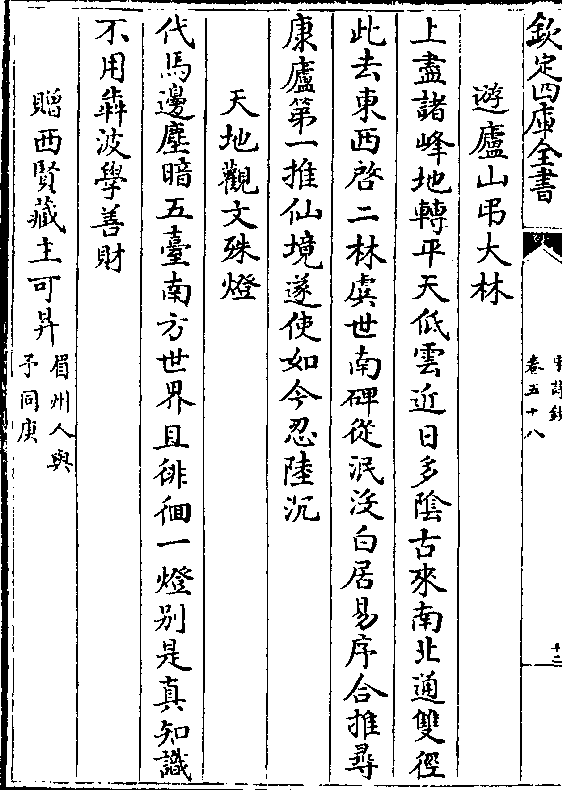 欽定四庫全書
卷五十八
遊廬山弔大林
上盡諸峰地轉平天低雲近日多陰古來南北通雙徑
此去東西啓二林虞世南碑從泯沒白居易序合推尋
康廬第一推仙境遂使如今忍陸沉
天地觀文殊燈
代馬邊塵暗五臺南方世界且徘徊一燈别是真知識
不用犇波學善財
贈西賢藏主可昇
眉州人與
予同庚